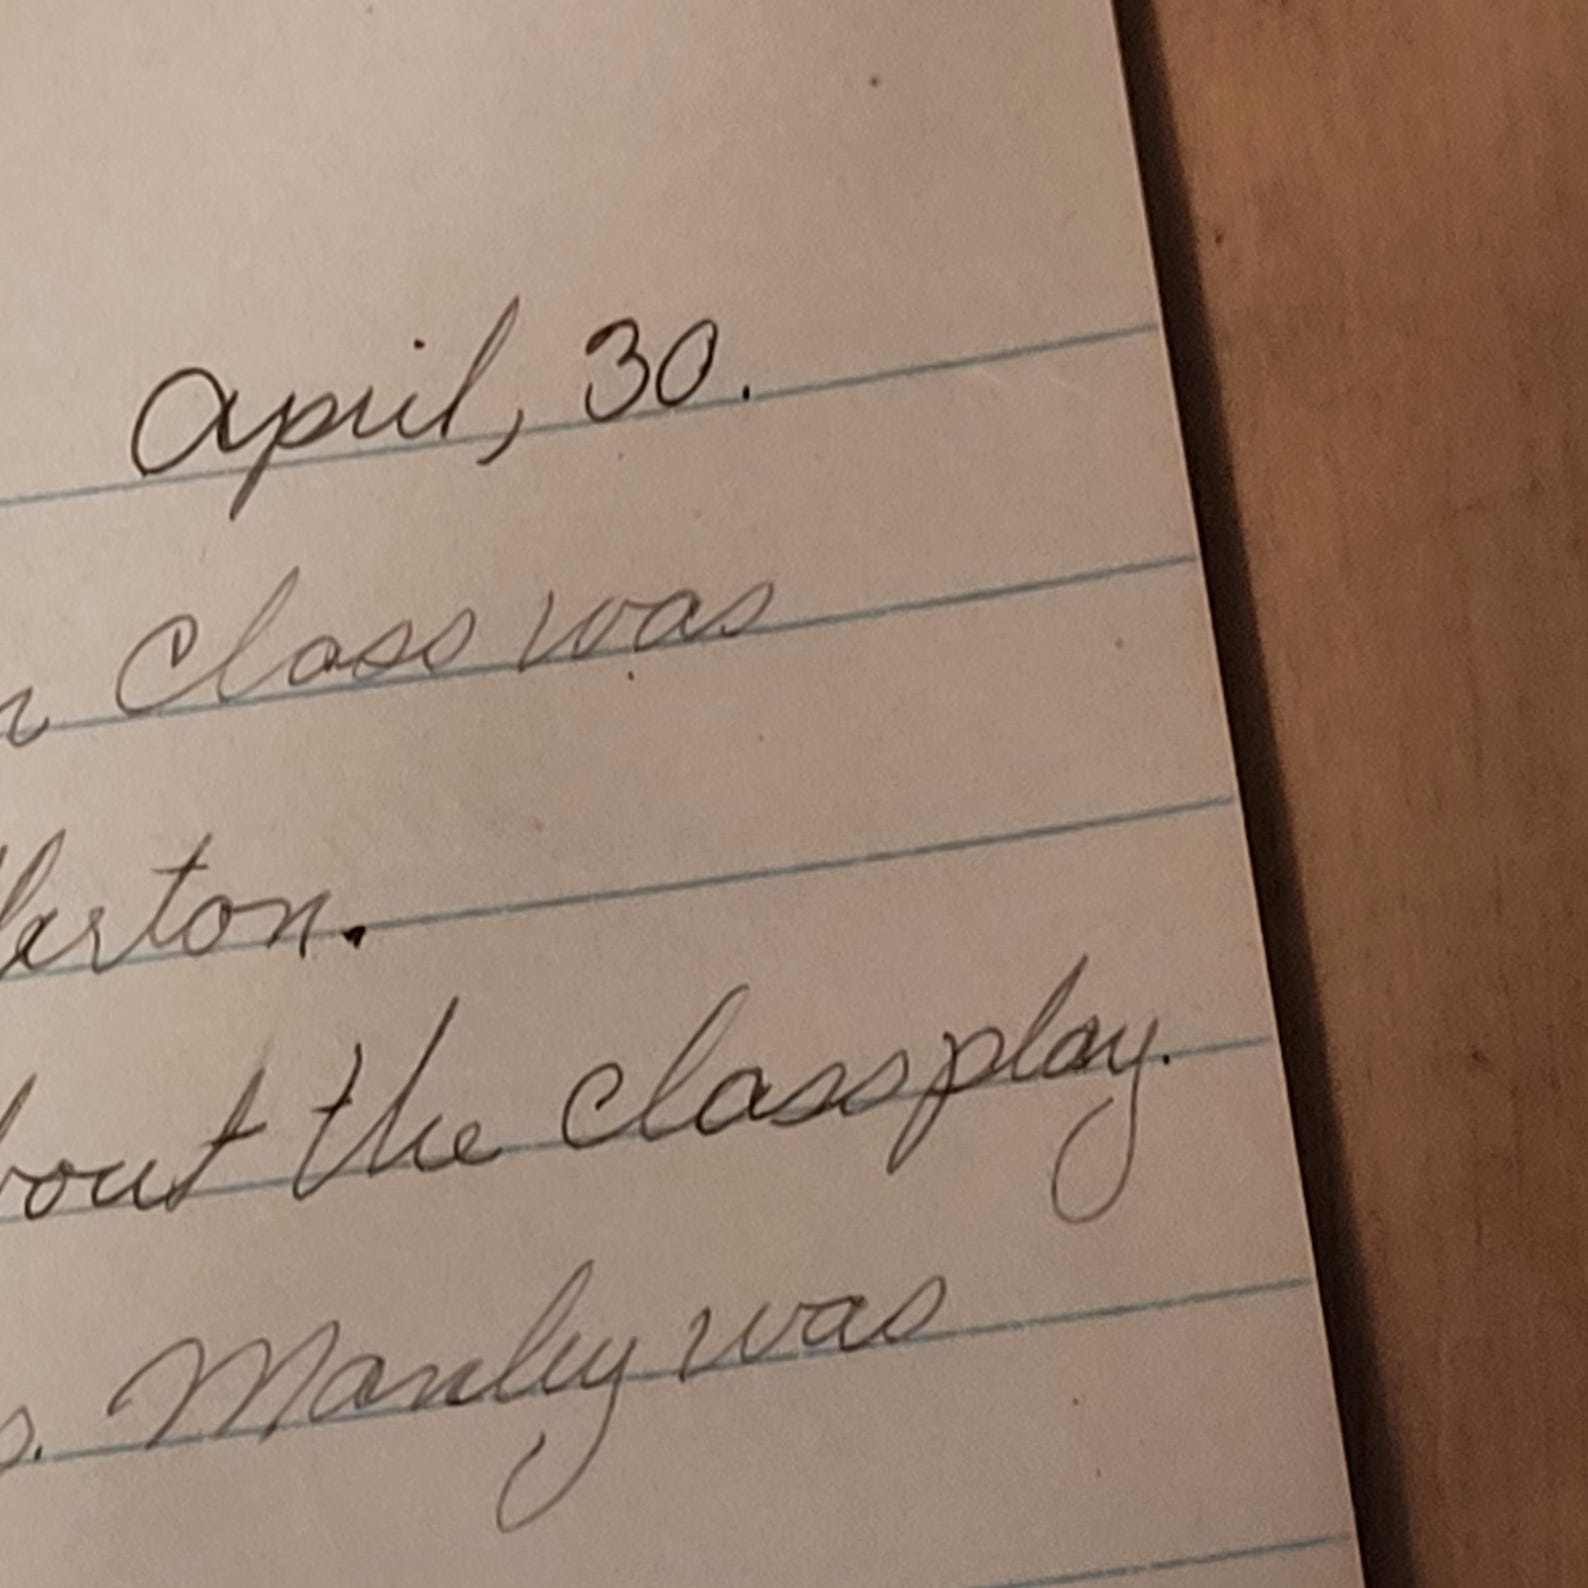 April, 30.
Class was
about the class play.
Manley was